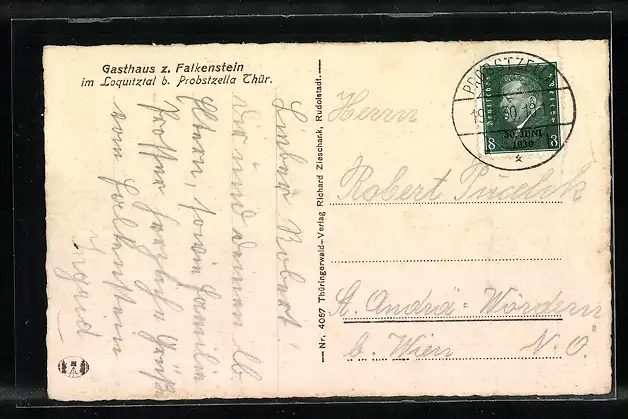 Gasthaus z. Falkenstein
im Loquitztal b. Probstzella Thür.
Lieber Robert!
Dir und deinen lb.
Eltern, sowie Familie
herzliche Grüße
vom Falkenstein
Ingrid
Nr. 4057 Thüringerwald-Verlag Richard Zieschank, Rudolstadt.
PROBSTZELLA
30. JUNI
1930
8 8
Herrn
Robert
St. Andrä-Wördern
b. Wien N.Ö.